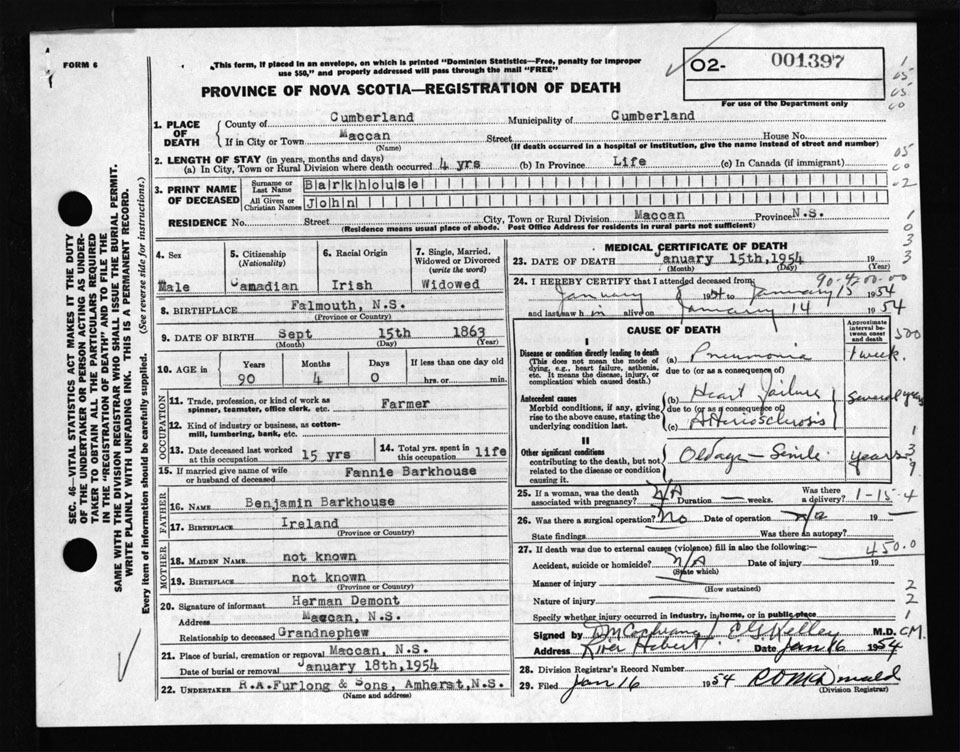 FORM 6
This form, if placed in an envelope, on which is printed "Dominion Statistics—Free, penalty for improper
use $50," and properly addressed will pass through the mail "FREE"
O2- 001397
For use of the Department only
PROVINCE OF NOVA SCOTIA—REGISTRATION OF DEATH
1. PLACE OF DEATH
County of Cumberland Municipality of Cumberland
If in City or Town Maccan Street House No.
(Name) (If death occurred in a hospital or institution, give the name instead of street and number)
2. LENGTH OF STAY (in years, months and days)
(a) In City, Town or Rural Division where death occurred 4 yrs (b) In Province Life (c) In Canada (if immigrant)
3. PRINT NAME OF DECEASED
Surname or Last Name Barkhouse
All Given or Christian Names John
RESIDENCE No. Street City, Town or Rural Division Maccan Province N.S.
(Residence means usual place of abode. Post Office Address for residents in rural parts not sufficient)
4. Sex Male
5. Citizenship (Nationality) Camadian
6. Racial Origin Irish
7. Single, Married, Widowed or Divorced (write the word) Widowed
8. BIRTHPLACE Falmouth, N.S.
(Province or Country)
9. DATE OF BIRTH Sept 15th 1863
(Month) (Day) (Year)
10. AGE in Years Months Days If less than one day old
90 4 0 hrs. or min.
OCCUPATION
11. Trade, profession, or kind of work as
spinner, teamster, office clerk, etc. Farmer
12. Kind of industry or business, as cotton-
mill, lumbering, bank, etc.
13. Date deceased last worked at this occupation 15 yrs
14. Total yrs. spent in this occupation life
15. If married give name of wife or husband of deceased Fannie Barkhouse
FATHER
16. NAME Benjamin Barkhouse
17. BIRTHPLACE Ireland
(Province or Country)
MOTHER
18. MAIDEN NAME not known
19. BIRTHPLACE not known
(Province or Country)
20. Signature of informant Herman Demont
Address Maccan, N.S.
Relationship to deceased Grandnephew
21. Place of burial, cremation or removal Maccan, N.S.
Date of burial or removal January 18th,1954
22. UNDERTAKER R.A.Furlong & Sons, Amherst,N.S.
(Name and address)
MEDICAL CERTIFICATE OF DEATH
23. DATE OF DEATH January 15th,1954 19
(Month) (Day) (Year)
90-4-00-00
24. I HEREBY CERTIFY that I attended deceased from
January 1954 to January 15 1954
and last saw h im alive on January 14 1954
CAUSE OF DEATH
Approximate interval between onset and death
I
Disease or condition directly leading to death
(This does not mean the mode of dying, e.g., heart failure, asthenia, etc. It means the disease, injury, or complication which caused death.)
(a) Pneumonia 1 week.
due to (or as a consequence of)
Antecedent causes
Morbid conditions, if any, giving rise to the above cause, stating the underlying condition last.
(b) Heart Failure Several years
due to (or as a consequence of)
(c) Arteriosclerosis
II
Other significant conditions
contributing to the death, but not related to the disease or condition causing it.
Old age — Senile years
25. If a woman, was the death associated with pregnancy? N/A Duration — weeks. Was there a delivery? 1-15-4
26. Was there a surgical operation? No Date of operation n/a 19 —
State findings Was there an autopsy?
450.0
27. If death was due to external causes (violence) fill in also the following:—
Accident, suicide or homicide? n/A Date of injury 19
(State which)
Manner of injury
(How sustained)
Nature of injury
Specify whether injury occurred in industry, in home, or in public place
Signed by D M Cochrane / E. G. Kelley M.D. C.M.
Address River Hebert Date Jan 16 1954
28. Division Registrar's Record Number
29. Filed Jan 16 1954
(Division Registrar)
SEC. 46—VITAL STATISTICS ACT MAKES IT THE DUTY
OF THE UNDERTAKER OR PERSON ACTING AS UNDER-
TAKER TO OBTAIN ALL THE PARTICULARS REQUIRED
IN THE "REGISTRATION OF DEATH" AND TO FILE THE
SAME WITH THE DIVISION REGISTRAR WHO SHALL ISSUE THE BURIAL PERMIT.
WRITE PLAINLY WITH UNFADING INK. THIS IS A PERMANENT RECORD.
Every item of information should be carefully supplied. (See reverse side for instructions.)